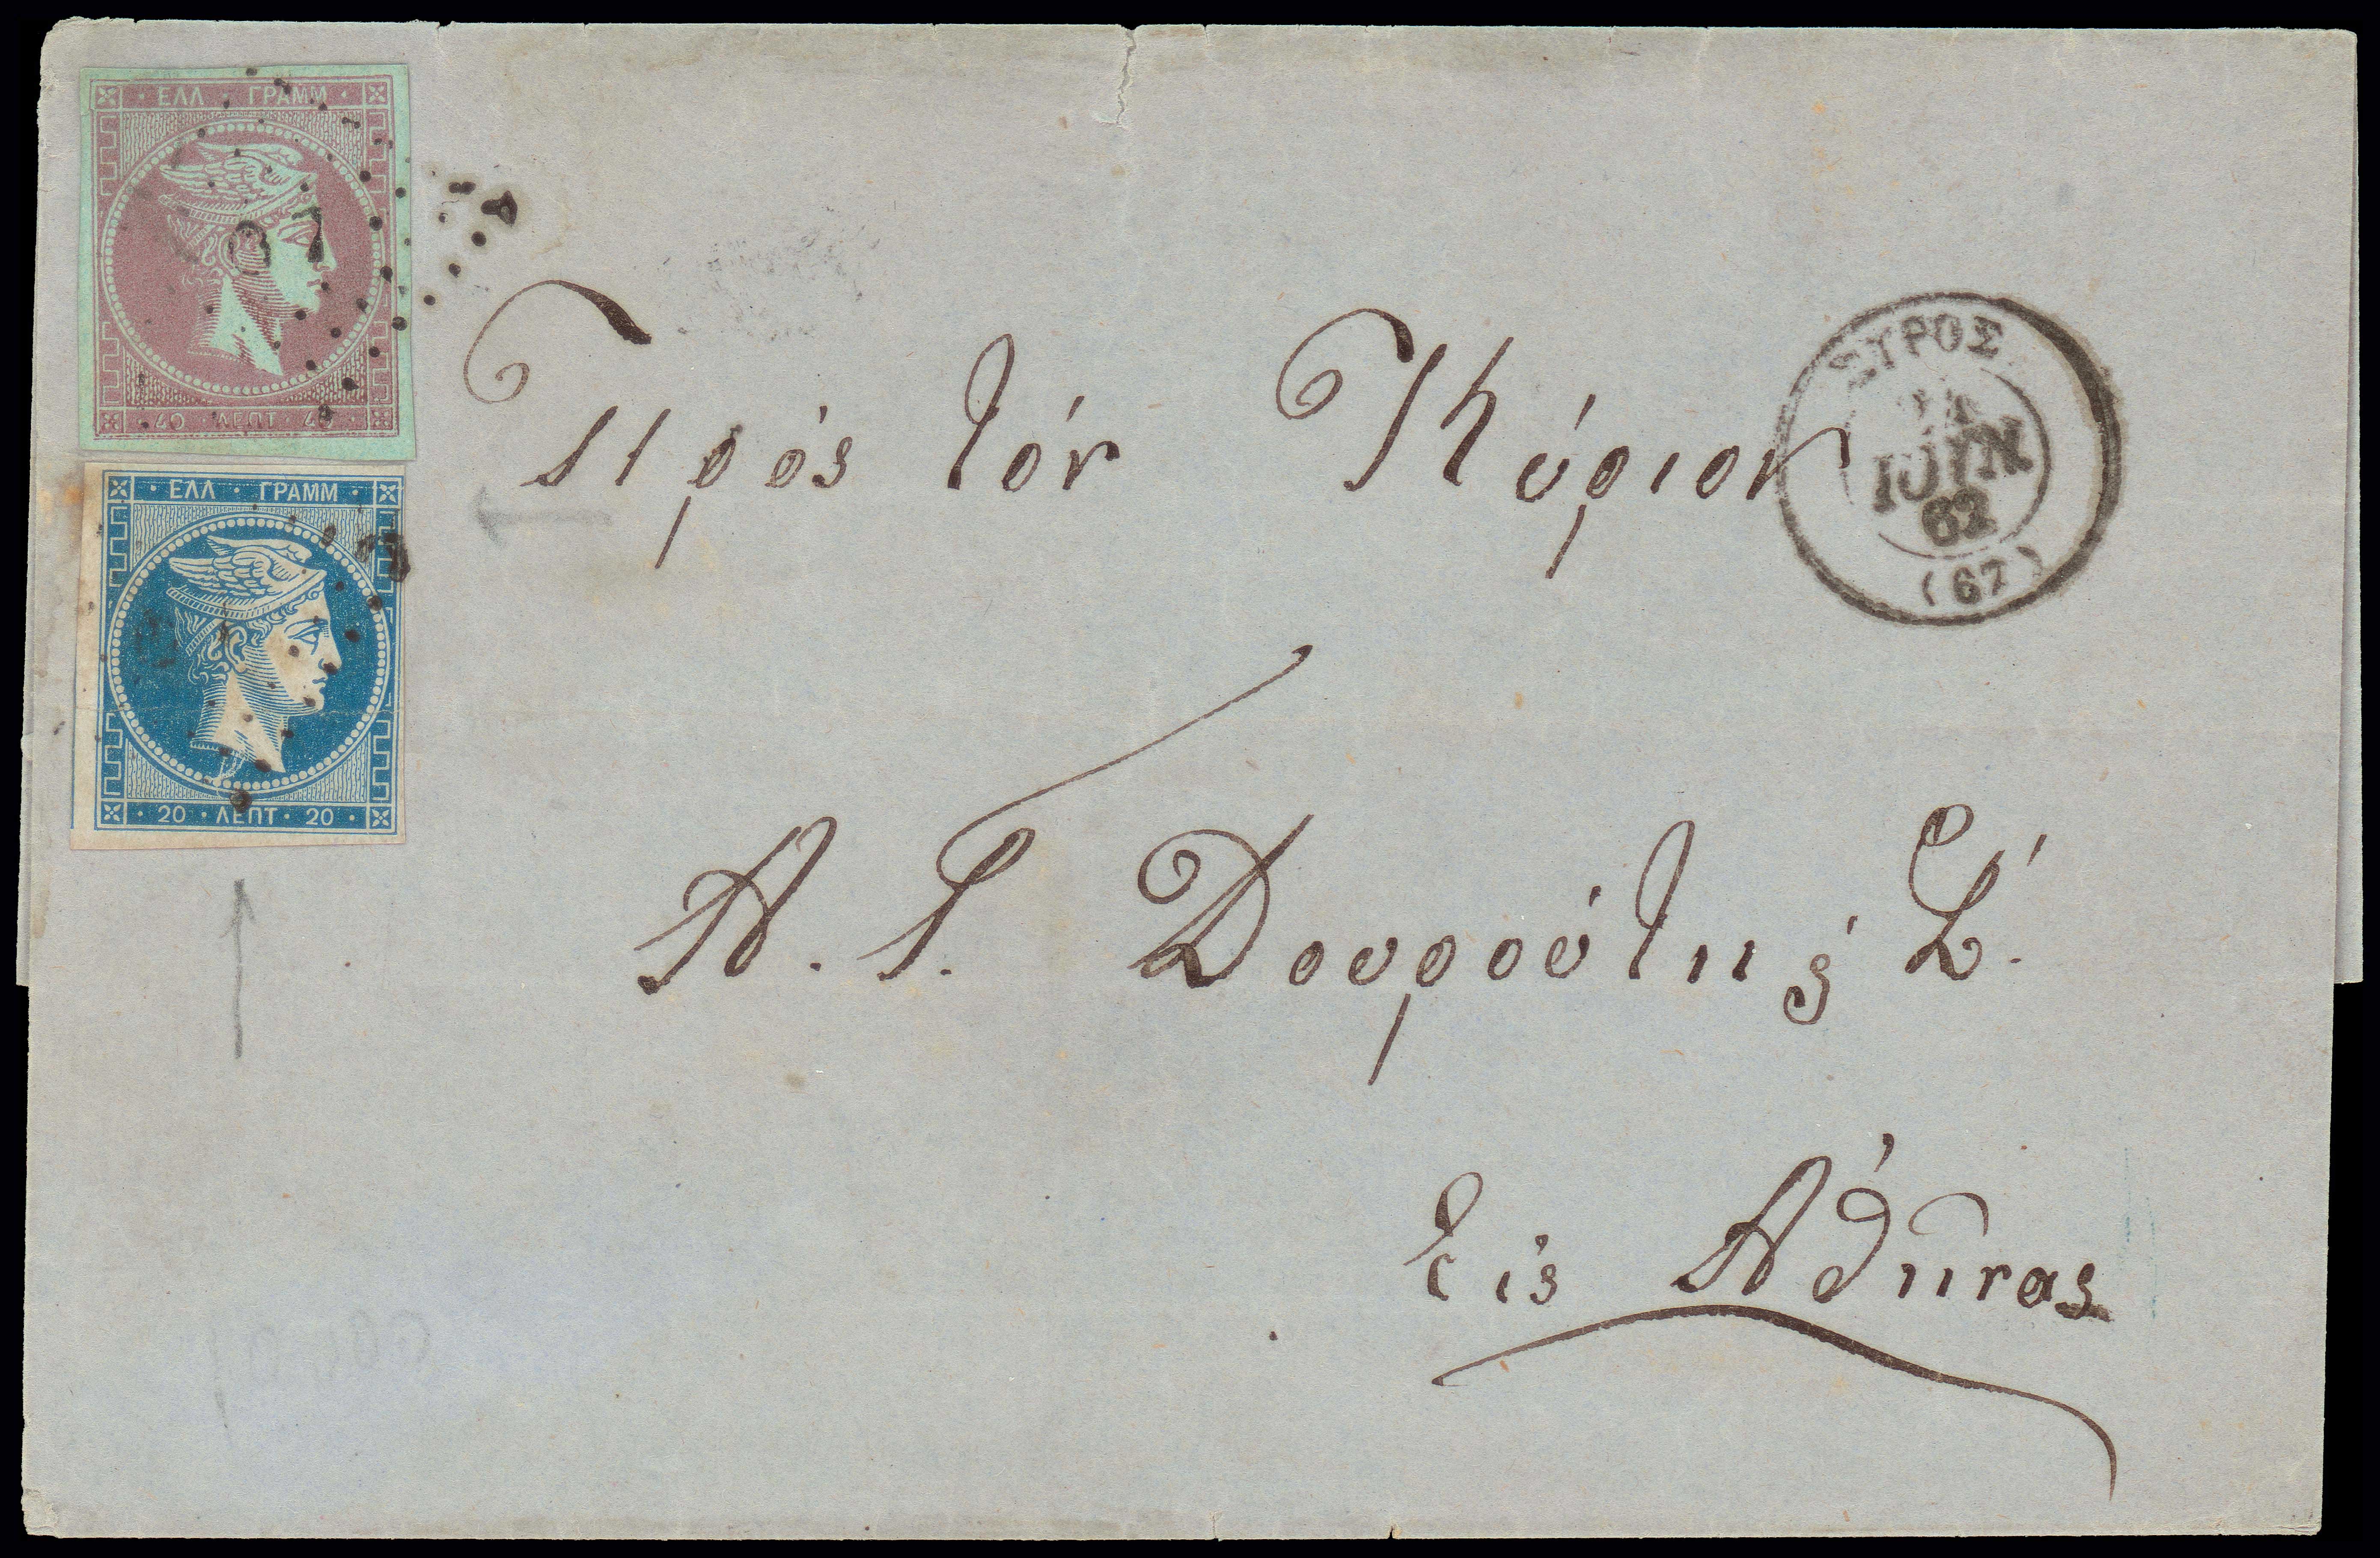 ΕΛΛ · ΓΡΑΜΜ ·
67
40 · ΛΕΠΤ · 40
ΕΛΛ · ΓΡΑΜΜ ·
· 20 · ΛΕΠΤ · 20 ·
ΣΥΡΟΣ
ΙΟΥΝ
62
(67)
Πρός τόν Κύριον
Α. Γ. Δουρούτης Σ.
Εις Αθήνας